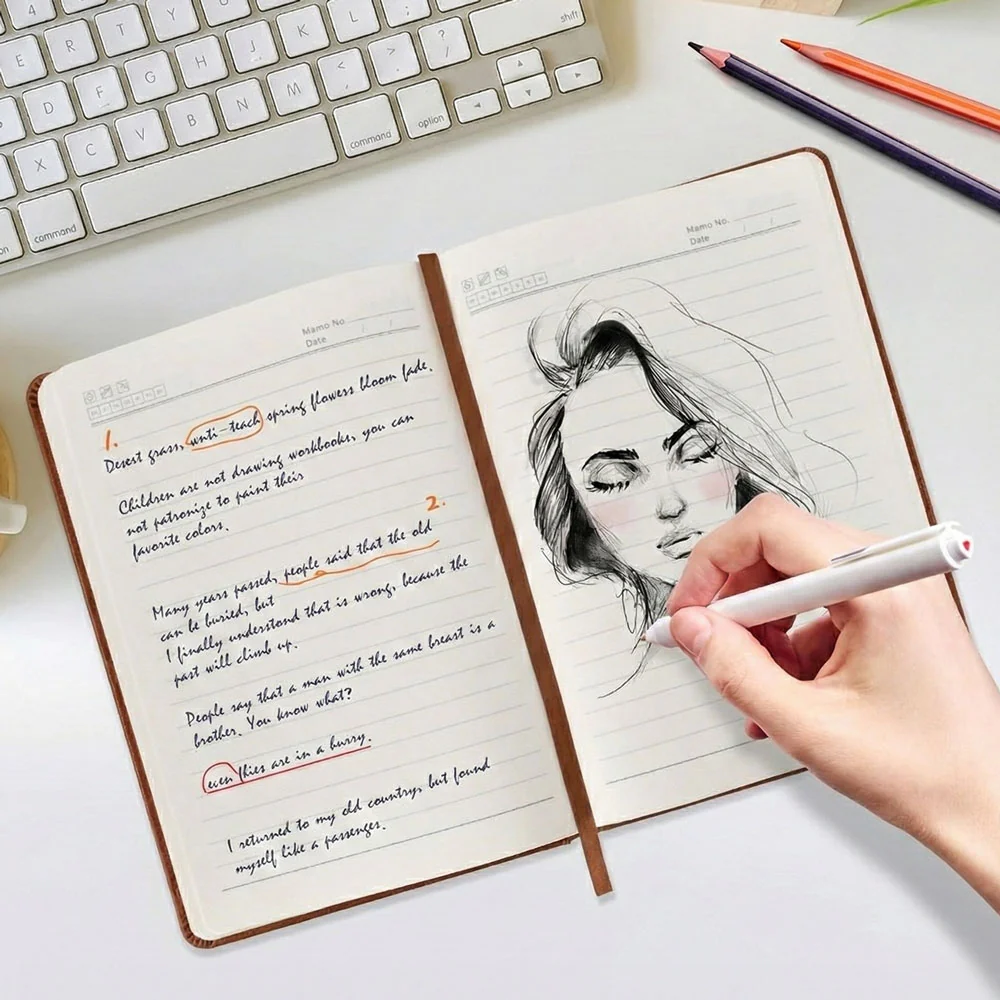 4
E R T Y
D F G H J K L ;
X C V B N M < , > . ? / shift
command command option
Mamo No.
Date
1.
Desert grass, wnti-teach spring flowers bloom fade.
Children are not drawing workbooks, you can
not patronize to paint their
favorite colors.
2.
Many years passed, people said that the old
can be buried, but
I finally understand that is wrong, because the
past will climb up.
People say that a man with the same breast is a
brother. You know what?
even thies are in a hurry.
I returned to my old country, but found
myself like a passenger.
Mamo No.
Date